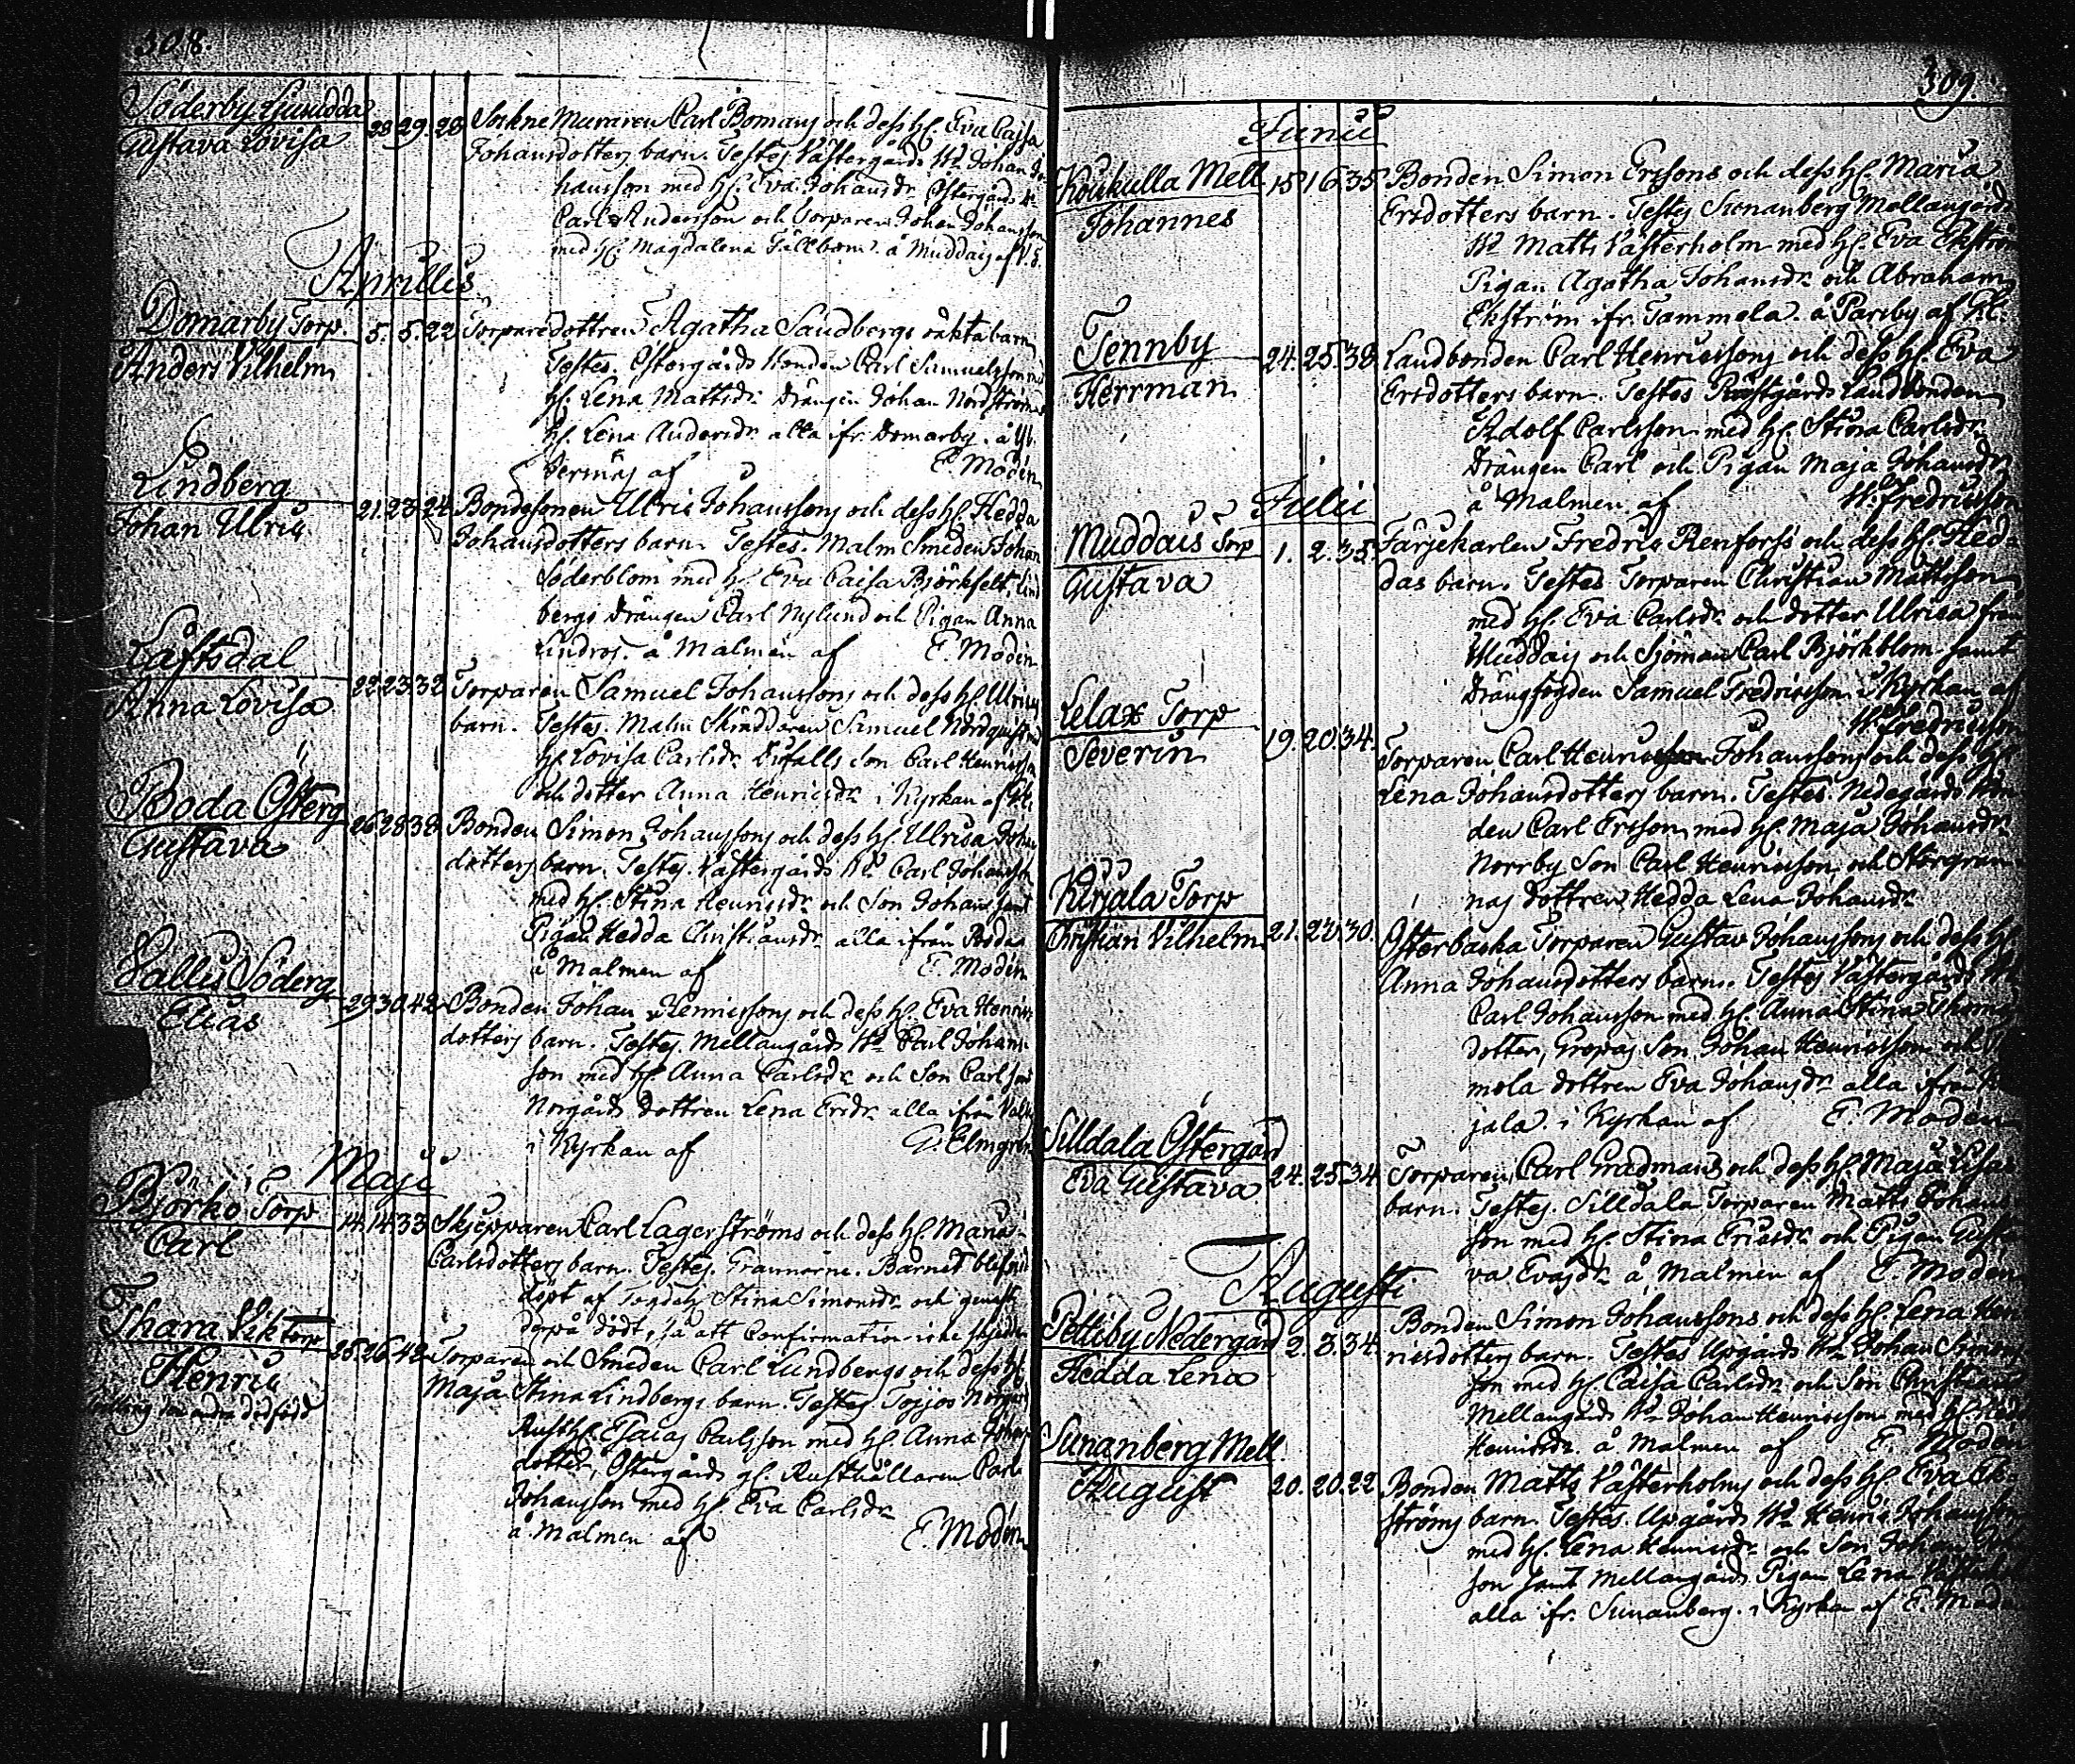 308.
Söderby Ljusudda
Gustava Lovisa
28 29. 28 Sockne Muraren Carl Bomans och dess H. Eva Cajsa
Johansdotters barn. Testes Västergårds Johan Jo
hansson med H. Eva Johansdr Östergårds
Carl Andersson och Torparen Johan Johansson
med H. Magdalena Fällbom å Muddais af
Aprillis
Domarby Torp.
Anders Vilhelm
5. 5. 22 Torparedottren Agatha Sandbergs oäkta barn
Testes. Östergårds Bonden Carl Samuelsson med
H. Lena Mattsdr Drängen Johan Nordströms
H. Lena Andersdr alla ifr. Domarby. å
af E. Modén
Lindberg
Johan Ulric
21. 23. 24 Bondesonen Ulric Johanssons och dess H. Hedda
Johansdotters barn. Testes. Malm Smeden Johan
Söderblom med H. Eva Caisa Björkfelt, Lind
bergs Drängen Carl Nylund och Pigan Anna
Lindros. å Malmen af E. Modén
Låftsdal
Anna Lovisa
22 23. 32 Torparen Samuel Johanssons och dess H. Ulricas
barn. Testes. Malm Skräddaren Samuel Nordqvist med
H. Lovisa Carlsdr son Carl Henricsson
och dotter Anna Henricsdr i Kyrkan af
Boda Österg
Gustava
26 28 38 Bonden Simon Johanssons och dess H. Ulrica Johans
dotters barn. Testes. Västergårds Carl Johansson
med H. Stina Henricsdr och Son Johan samt
Pigan Hedda Christiansdr alla ifrån Boda
å Malmen af E. Modén
Vallis Söderg
Elias
29 30. 42 Bonden Johan Hennissons och dess H. Eva Henrics
dotters barn. Testes. Mellangårds Carl Johans
son med H. Anna Carlsdr och Son Carl samt
Norgårds dottren Lena Ersdr alla ifrån Vallis
i Kyrkan af G. Elmgren
Maji
Björkö Torp
Carl
14. 14. 33 Skjepparen Carl Lagerströms och dess H. Maria
Carlsdotters barn. Testes. Grannarne. Barnet blef nöd
döpt af Stina Simonsdr och genast
derpå dödt, så att Confirmation icke skjedde
Thara Vik Torp
Henric
25. 26. 42 Torparen och Smeden Carl Lundbergs och dess H.
Maja Stina Lindbergs barn. Testes Norgårds
Rusth. Esaias Carlsson med H. Anna Johans
dotter, Östergårds Rusthållaren Carl
Johansson med H. Eva Carlsdr
å Malmen af E. Modén
309.
Junii
Koukulla Mell.
Johannes
15 16. 35 Bonden Simon Ersons och dess H. Maria
Ersdotters barn. Testes Sunanberg Mellangårds
Matts Västerholm med H. Eva Ekström
Pigan Agatha Johansdr och Abraham
Ekström ifr. Tammela. å Parsby af
Tennby
Herrman
24. 25. 38. Landbonden Carl Henricssons och dess H. Eva
Ersdotters barn. Testes Prästgårds Landbonden
Adolf Carlsson med H. Stina Carlsdr
Drängen Carl och Pigan Maja Johansdr
å Malmen af Fredricsson
Julii
Muddais Torp
Gustava
1. 2. 35. Färjekarlen Fredric Renforss och dess H. Hed
das barn. Testes Torparen Christian Mattsson
med H. Eva Carlsdr och dotter Ulrica från
Muddais och Sjöman Carl Björkblom samt
Drängfogden Samuel Fredricsson i Kyrkan af
Fredricsson
Lelax Torp
Severin
19. 20. 34. Torparen Carl Johanssons och dess H.
Lena Johansdotters barn. Testes Nedegårds Bon
den Carl Ersson med H. Maja Johansdr
Norrby Son Carl Henricsson och Storgran
nas dottren Hedda Lena Johansdr
Kirjala Torp
Christian Vilhelm
21. 22. 30. Österbacka Torparen Gustav Johanssons och dess H.
Anna Johansdotters barn. Testes Västergårds
Carl Johansson med H. Anna Stina Thoma
dotter, Gropas Son Johan Henricsson och
mola dottren Eva Johansdr alla ifrån Kir
jala. i Kyrkan af E. Modén
Silldala Östergård
Eva Gustava
24. 25. 34. Torparen Carl Gradmans och dess H. Maja Lisas
barn. Testes. Silldala Torparen Matts Johans
son med H. Stina Ericsdr och Pigan Gusta
va Evasdr å Malmen af E. Modén
Augusti
Pettiby Nedergård
Hedda Lena
2. 3. 34. Bonden Simon Johanssons och dess H. Lena Hen
ricsdotters barn. Testes Upgårds Johan Simons
son med H. Caisa Carlsdr och Son Christian
Mellangårds Johan Henricsson med H. Hedda
Henricsdr. å Malmen af E. Modén
Sunanberg Mell.
August
20. 20. 22 Bonden Matts Västerholms och dess H. Eva Ek
ströms barn. Testes. Upgårds Henric Johansson
med H. Lena Henricsdr och Son Johan
son samt Mellangårds Pigan Lena
alla ifr. Sunanberg. i Kyrkan af E. Modén